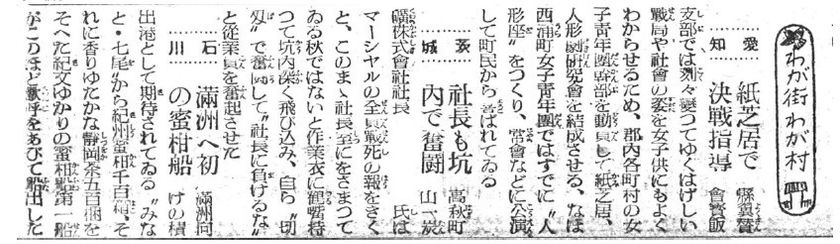 わが街わが村
愛知
紙芝居で
決戰指導
縣翼賛
會寳飯
支部では刻々變つてゆくはげしい
戰局や社會の姿を女子供にもよく
わからせるため、郡内各町村の女
子青年團幹部を動員して紙芝居、
人形劇研究會を結成させる、なほ
西浦町女子青年團ではすでに〝人
形座〟をつくり、常會などに公演
して町民から喜ばれてゐる
茨城
社長も坑
内で奮闘
高萩町
山一炭
礦株式會社社長　氏は
マーシヤルの全員戰死の報をきく
と、このまゝ社長室にをさまつて
ゐる秋ではないと作業衣に鶴嘴持
つて坑内深く飛び込み、自ら〝切
羽〟で奮闘して〝社長に負けるな〟
と從業員を奮起させた
石川
滿洲へ初
の蜜柑船
滿洲向
けの積
出港として期待されてゐる〝みな
と・七尾〟から紀州蜜柑千百箱、そ
れに香りゆたかな靜岡茶五百梱を
そへた紀文ゆかりの蜜柑船第一船
がこのほど歡呼をあびて船出した